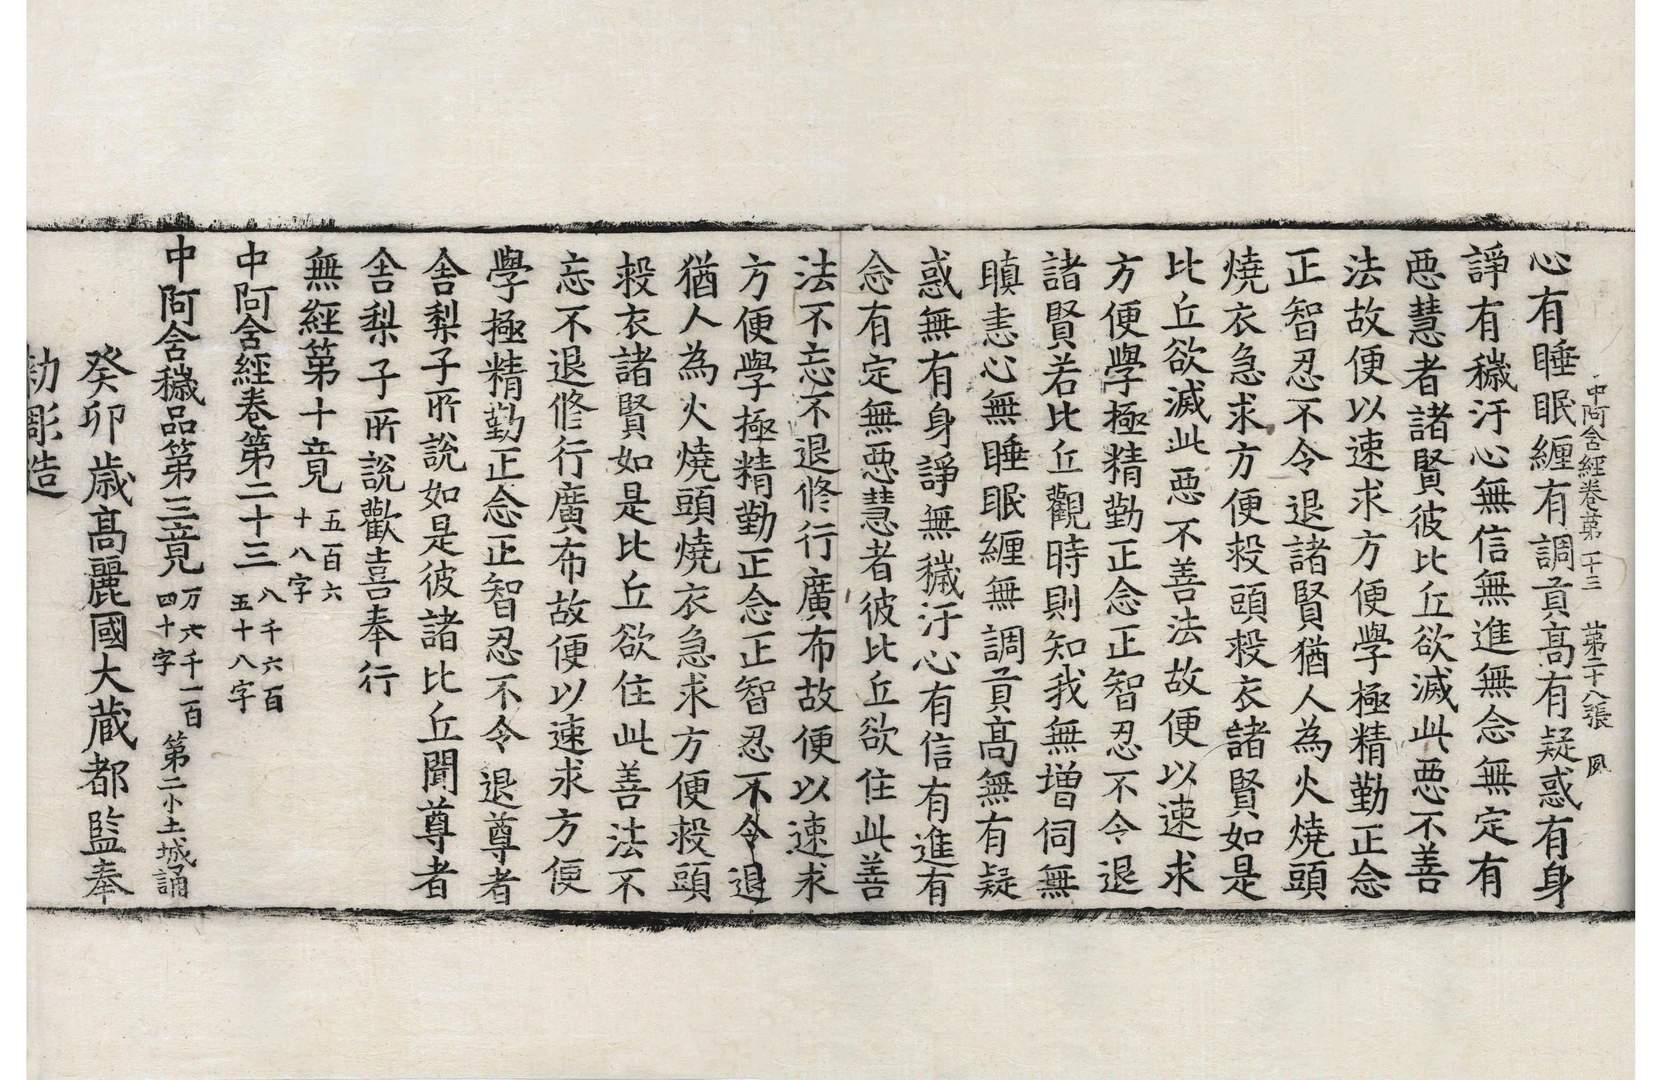 中阿含經卷第二十三 第二十八張 風
心有睡眠纏有調貢高有疑惑有身
諍有穢汙心無信無進無念無定有
惡慧者諸賢彼比丘欲滅此惡不善
法故便以速求方便學極精勤正念
正智忍不令退諸賢猶人為火燒頭
燒衣急求方便救頭救衣諸賢如是
比丘欲滅此惡不善法故便以速求
方便學極精勤正念正智忍不令退
諸賢若比丘觀時則知我無增伺無
瞋恚心無睡眠纏無調貢高無有疑
惑無有身諍無穢汙心有信有進有
念有定無惡慧者彼比丘欲住此善
法不忘不退修行廣布故便以速求
方便學極精勤正念正智忍不令退
猶人為火燒頭燒衣急求方便救頭
救衣諸賢如是比丘欲住此善法不
忘不退修行廣布故便以速求方便
學極精勤正念正智忍不令退尊者
舍梨子所說如是彼諸比丘聞尊者
舍梨子所說歡喜奉行
無經第十竟 五百六十八字
中阿含經卷第二十三 八千六百五十八字
中阿含穢品第三竟 万六千一百四十字 第二小土城誦
癸卯歲高麗國大藏都監奉
勅彫造